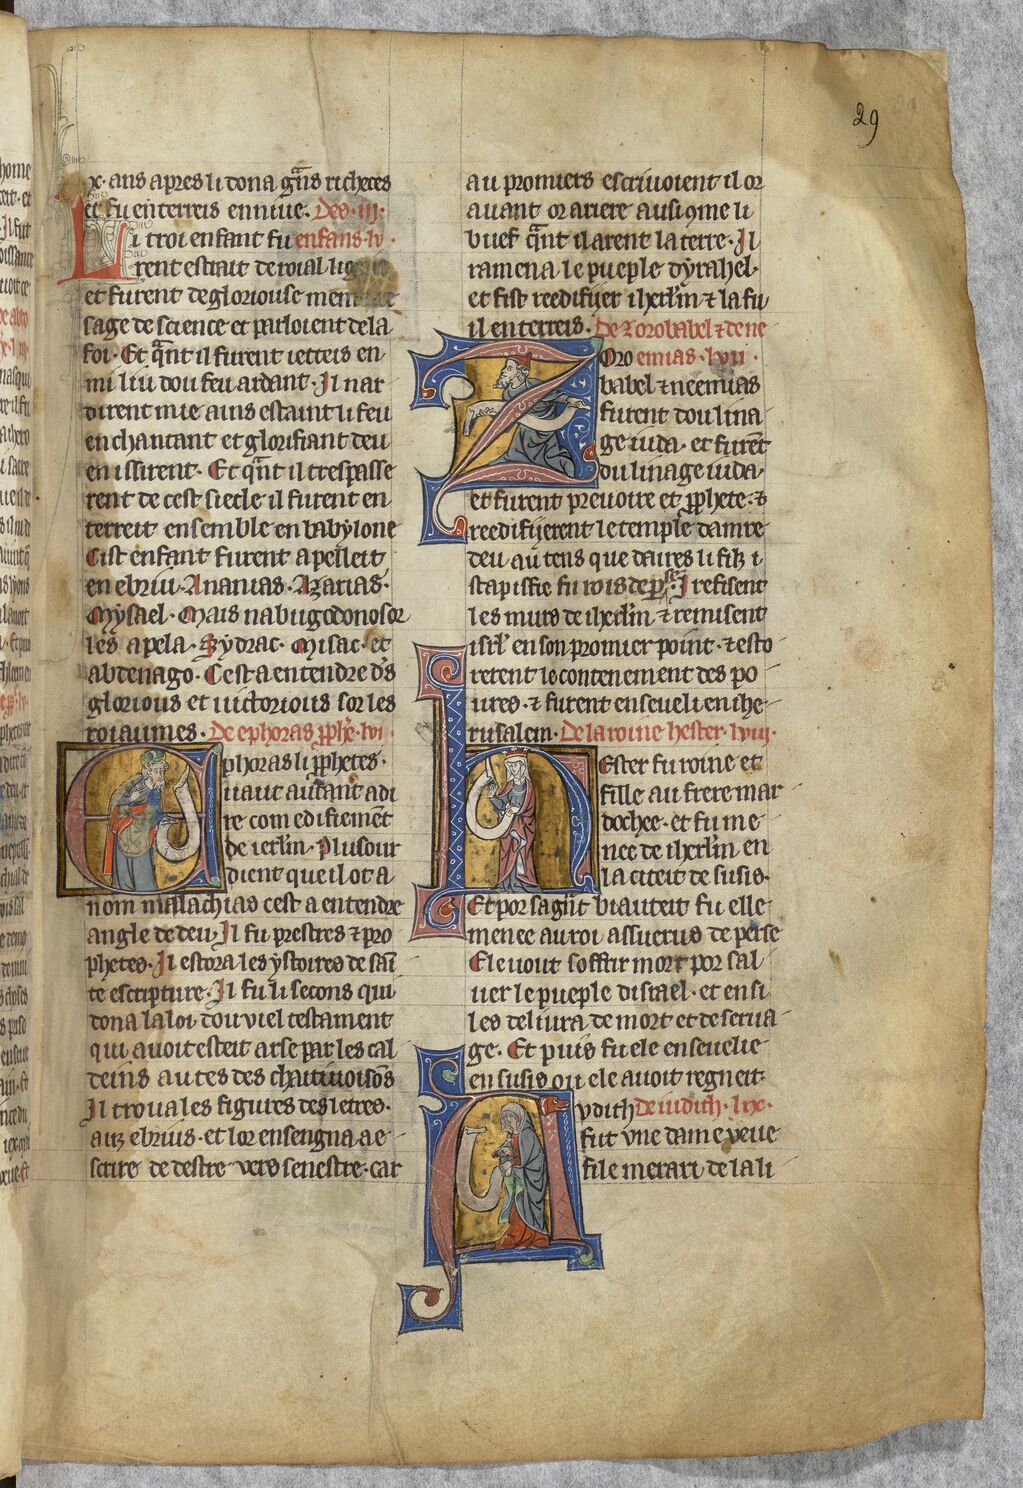 29
x· ans apres li dona gͣns richeces
et fu enterreis en niue. Des .iii.
Li troi enfant fu enfans·lv·
rent estrait de roial lig
et furent de gloriouse mem
sage de science et parloient de la
foi· Et qͣnt il furent ietteis en
mi liu dou feu ardant· Il nar
dirent mie ains estaint li feu
en chantant et glorifiant deu
en issirent· Et qͣnt il trespasse
rent de cest siecle il furent en
terreit ensemble en babylone
Cist enfant furent apelleit
en ebriu· Ananias· Azarias·
Mysael· Mais nabugodonosor
les apela· Sydrac· Misac· et
abdenago· Cest a entendre
glorious et uictorious sor les
roiaumes· De ephoras pphe·lvi·
Ephoras li pphetes·
uaut autant a di
re com edifiement
de ierlm· Plusour
dient que il ot a
nom malachias cest a entendre
angle de deu· Il fu prestres ⁊ pro
phetes· Il estora les ystoires de sai
te escripture· Il fu li secons qui
dona la loi dou viel testament
qui auoit esteit arse par les cal
deins au tes des chaitiuoisos
Il troua les figures des letres·
auz ebruis· et lor ensengna a e
scrire de destre vers senestre· car
au promiers escriuoient il or
auant or ariere ausi qme li
buef qͣnt il arent la terre· Il
ramena le pueple dyrahel·
et fist reedifijer iherlm ⁊ la fu
il enterreis· De zorobabel ⁊ de ne
Zoro emias·lvii·
babel ⁊ neemias
furent dou lina
ge iuda· et furet
dou linage iuda·
et furent preuoire et pphete· ⁊
reedifijerent le temple damre
deu au tens que daires li filz i
stapissie fu rois de pse· I refisent
les murs de iherlm ⁊ remisent
isrl en son promier point· ⁊ esto
rerent le contenement des po
ures· ⁊ furent enseueli en ihe
rusalem· De la roine hester·lviii·
hEster fu roine et
fille au frere mar
dochee· et fu me
nee de iherlm en
la citeit de susis·
Et por sa gnt biauteit fu elle
menee au roi assuerus de perse
Ele uout soffrir mort por sal
uer le pueple disrael· et ensi
les deliura de mort et de serua
ge· Et puis fu ele enseuelie
en susis ou ele auoit regneit·
Iydith De iudith·lix·
fut vne dame veue
file merari· de la li